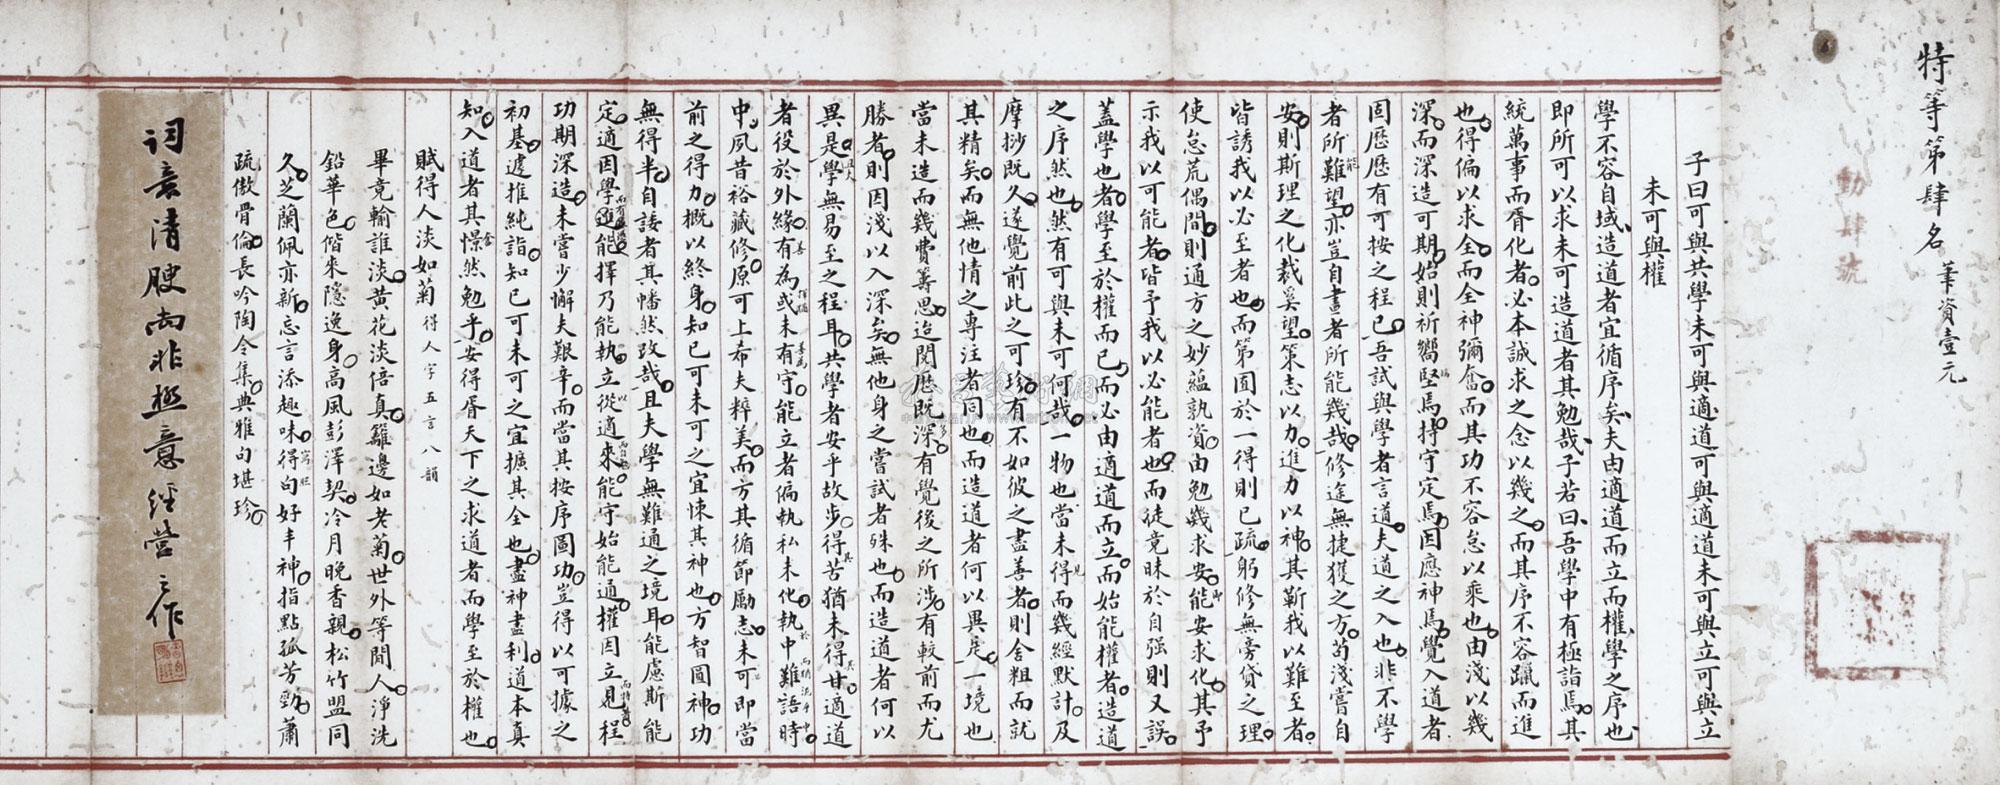 特等第肆名
筆資壹元
勤肆號
子曰可與共學未可與適道可與適道未可與立可與立
未可與權
學不容自域造道者宜循序矣夫由適道而立而權學之序也
即所可以求未可造道者其勉哉子若曰吾學中有極詣焉其
統萬事而胥化者必本誠求之念以幾之而其序不容躐而進
也得偏以求全而全神彌奮而其功不容怠以乘也由淺以幾
深而深造可期始則祈嚮堅焉持守定焉因應神焉覺入道者
固歷歷有可按之程已吾試與學者言道夫道之入也非不學
者所難望亦豈自畫者所能幾哉修途無捷獲之方苟淺嘗自
安則斯理之化裁奚望策志以力進力以神其靳我以難至者
皆誘我以必至者也而第囿於一得則已疏躬修無旁貸之理
使怠荒偶間則通方之妙蘊孰資由勉幾求安能安求化其予
示我以可能者皆予我以必能者也而徒竟昧於自强則又誤
蓋學也者學至於權而已而必由適道而立而始能權者造道
之序然也然有可與未可何哉一物也當未得而幾經默計及
摩挱既久遂覺前此之可珍有不如彼之盡善者則舍粗而就
其精矣而無他情之專注者同也而造道者何以異是一境也
當未造而幾費籌思迨閱歷既深有覺後之所涉有較前而尤
勝者則因淺以入深矣無他身之嘗試者殊也而造道者何以
異是學無易至之程耳共學者安乎故步得苦猶未得甘適道
者役於外緣有為或未有守能立者偏執私未化執中難語時
中夙昔裕藏修原可上希夫粹美而方其循節勵志未可即當
前之得力概以終身知已可未可之宜悚其神也方智圓神功
無得半自諉者其幡然改哉且夫學無難通之境耳能慮斯能
定適因學進能擇乃能執立從適來能守始能通權因立見程
功期深造未嘗少懈夫艱辛而當其按序圖功豈得以可據之
初基遽推純詣知已可未可之宜擴其全也盡神盡利道本真
知入道者其憬然勉乎安得胥天下之求道者而學至於權也
賦得人淡如菊 得人字五言八韻
畢竟輸誰淡黃花淡倍真籬邊如老菊世外等閒人淨洗
鉛華色偕來隱逸身高風彭澤契冷月晚香親松竹盟同
久芝蘭佩亦新忘言添趣味得句好丰神指點孤芳勁蕭
疏傲骨倫長吟陶令集典雅句堪珍
詞意清腴尚非極意經營之作